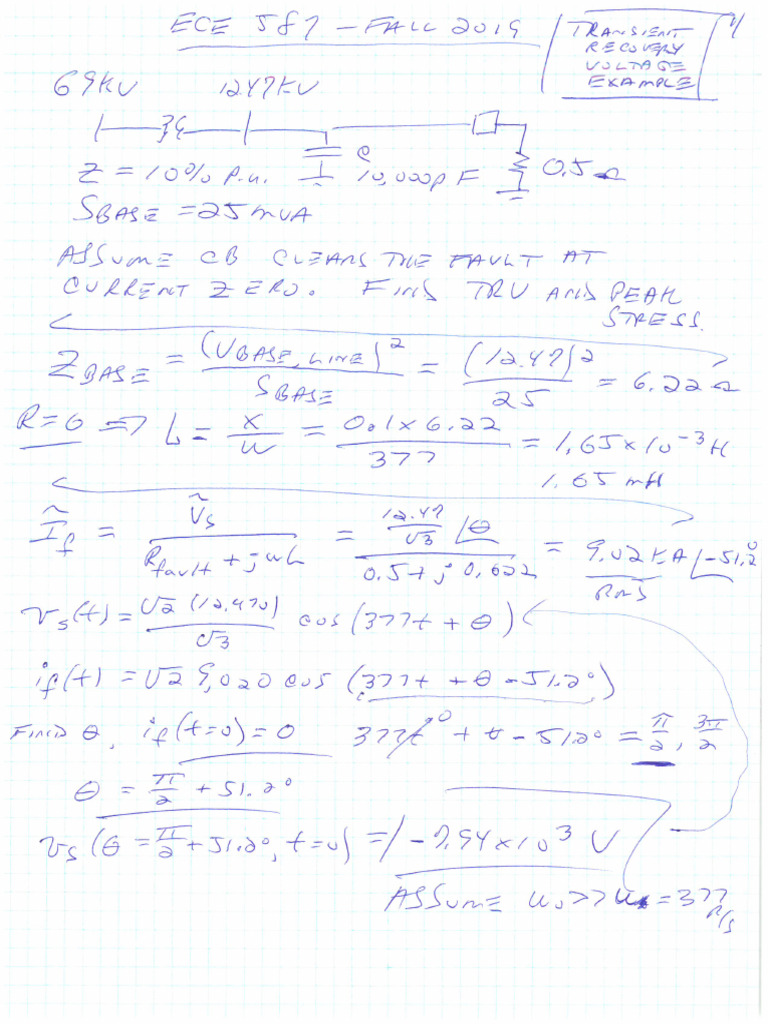 ECE 587 – FALL 2019
TRANSIENT
RECOVERY
VOLTAGE
EXAMPLE
1/
69KV 12.47KV
Z = 10% p.u. C 10,000pF 0.5Ω
S_BASE = 25 MVA
ASSUME CB CLEARS THE FAULT AT
CURRENT ZERO. FIND TRV AND PEAK
STRESS.
Z_BASE = (V_BASE, LINE)² / S_BASE = (12.47)² / 25 = 6.22 Ω
R=0 ⇒ L = X/ω = 0.1×6.22 / 377 = 1.65×10⁻³ H
1.65 mH
Ĩ_f = Ṽ_s / (R_fault + jωL) = (12.47/√3 ∠θ) / (0.5 + j 0.622) = 9.02 KA ∠-51.2°
RMS
v_s(t) = √2 (12,470) / √3 cos(377t + θ)
i_f(t) = √2 9,020 cos (377t + θ - 51.2°)
FIND θ, i_f(t=0) = 0 377t⁰ + θ - 51.2° = π/2, 3π/2
θ = π/2 + 51.2°
v_s (θ = π/2 + 51.2°, t=0) = -7.94×10³ V
ASSUME ω₀>>ω = 377 R/S